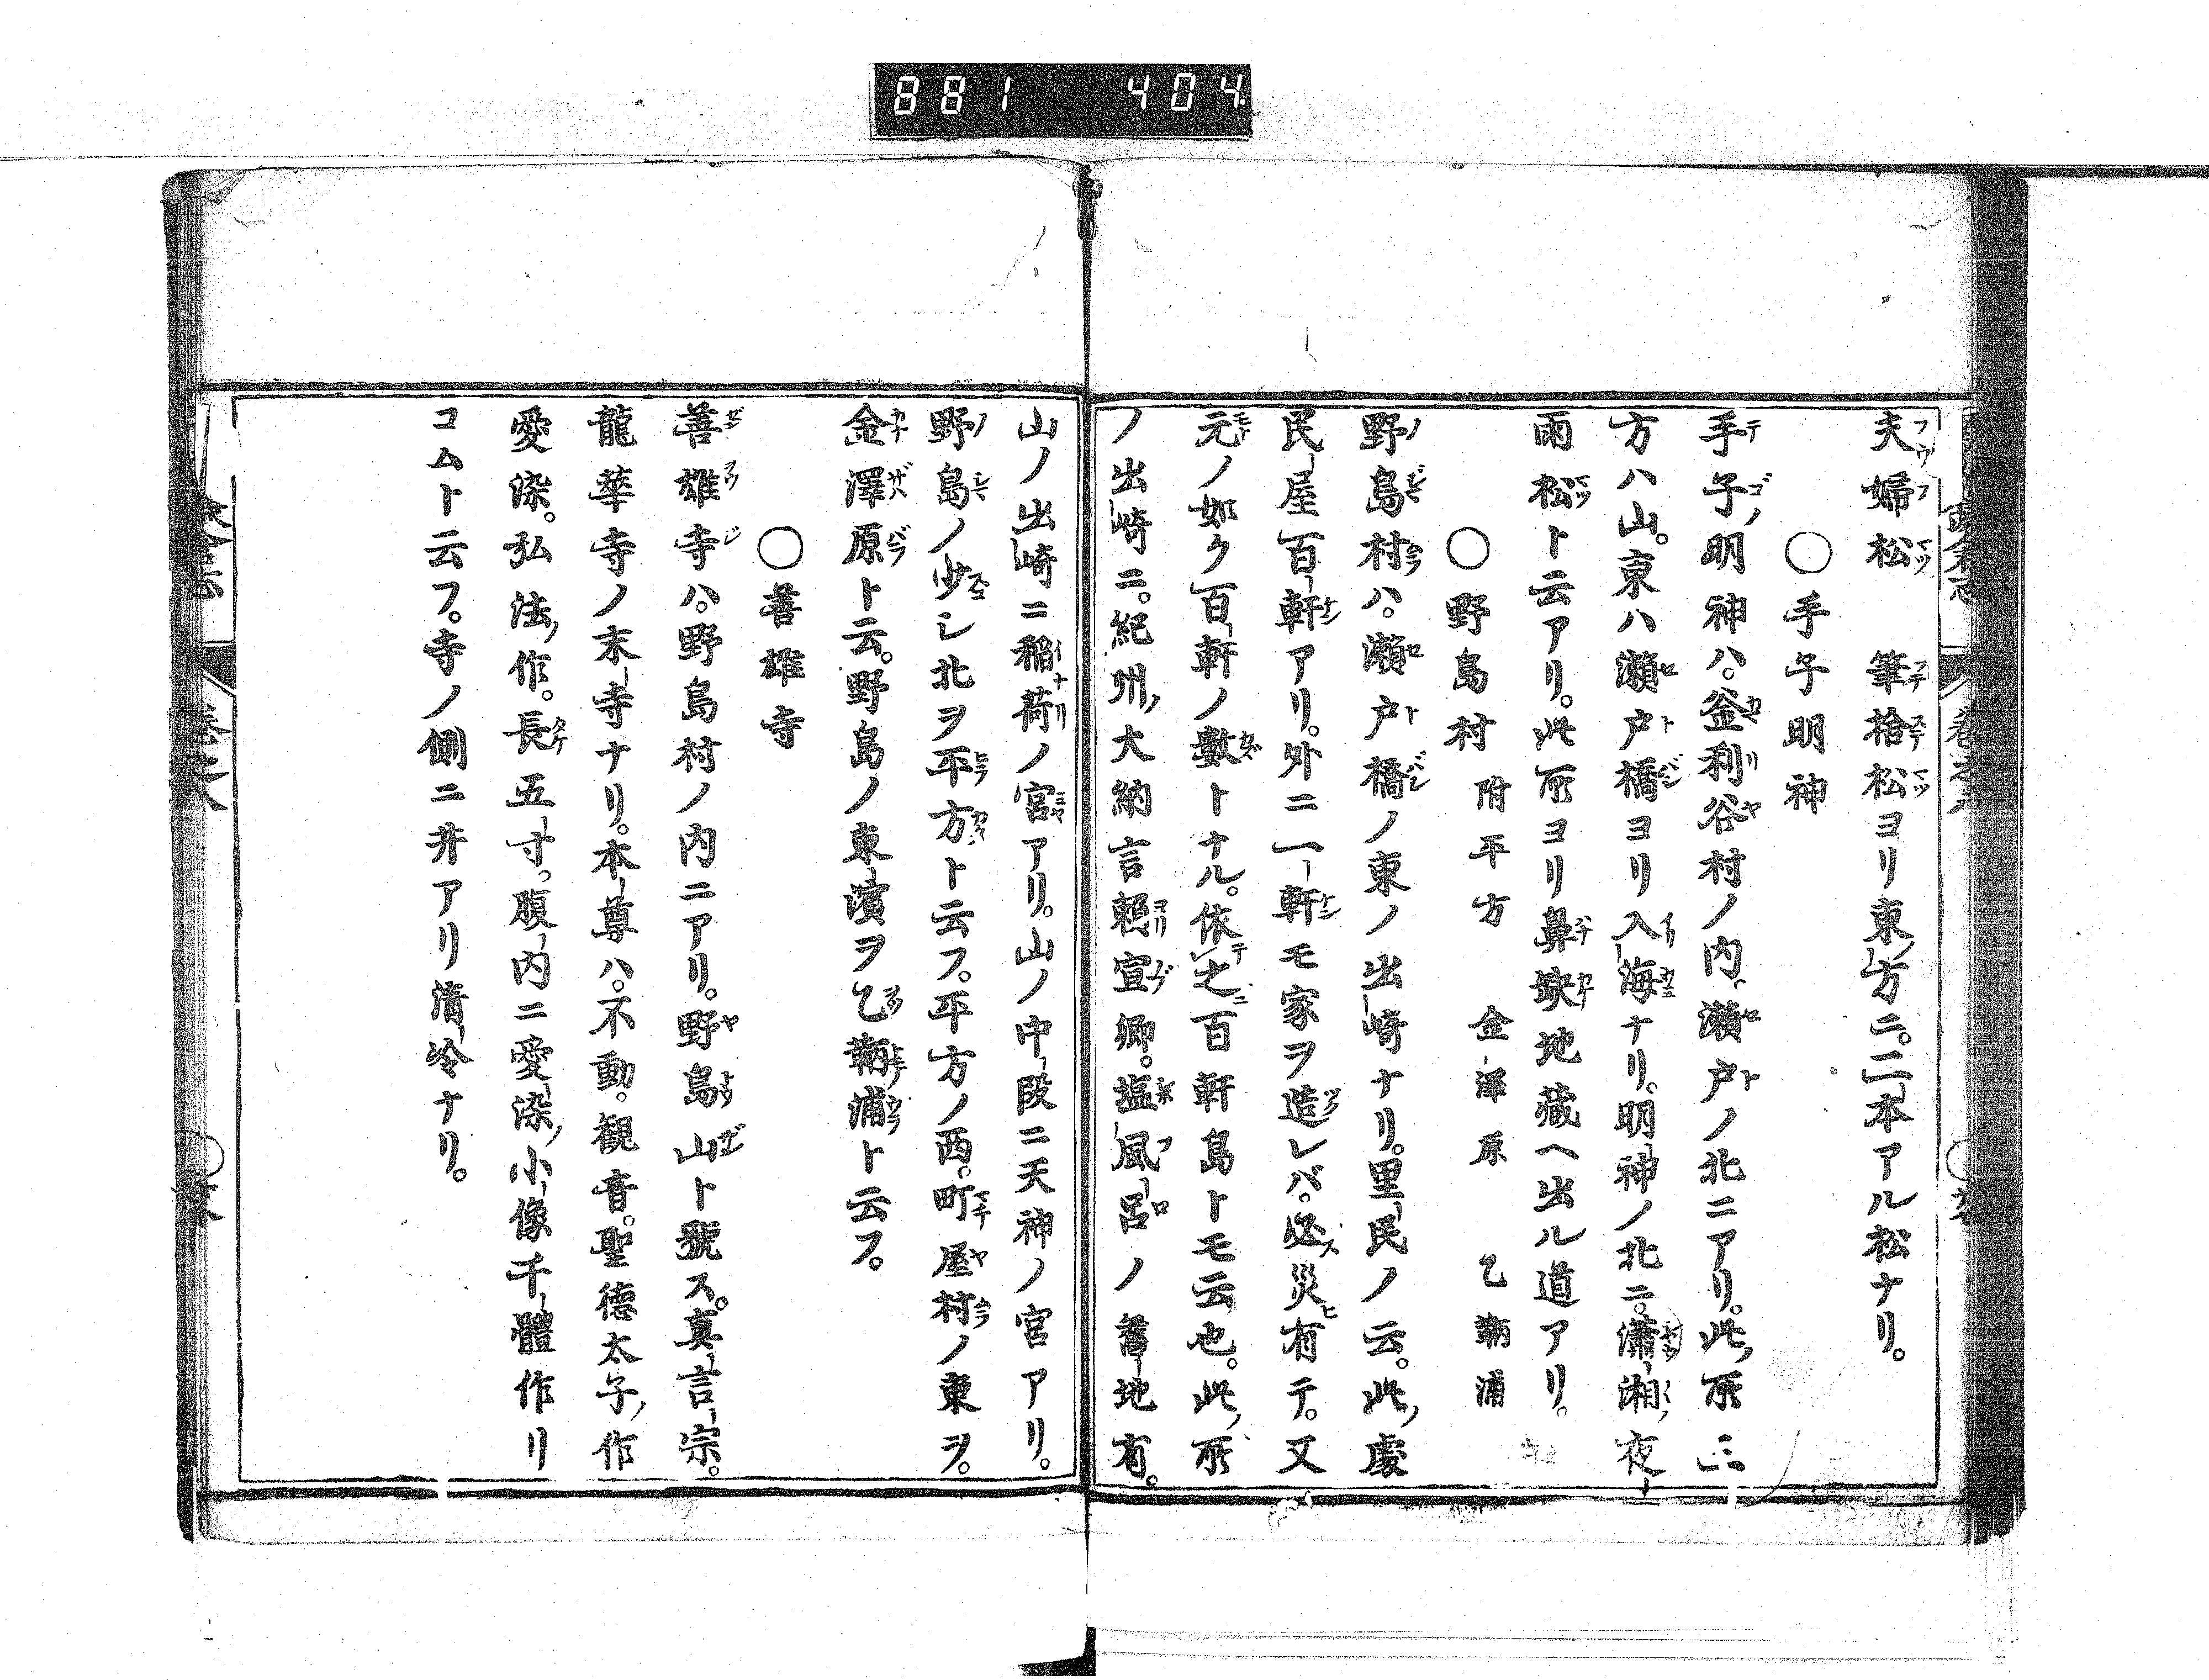 881 404
夫婦松　筆捨松ヨリ東ノ方ニ。二本アル松ナリ。
○手子明神
手子ノ明神ハ。釜利谷村ノ内。瀬戸ノ北ニアリ。此ノ所三
方ハ山。東ハ瀬戸橋ヨリ入海ナリ。明神ノ北ニ。瀟湘ノ夜
雨松ト云アリ。此所ヨリ鼻缺地蔵ヘ出ル道アリ。
○野島村　附平方　金澤原　乙鞆浦
野島村ハ。瀬戸橋ノ東ノ出崎ナリ。里民ノ云。此ノ處
民屋百軒アリ。外ニ一軒モ家ヲ造レバ。必ス災有テ。又
元ノ如ク百軒ノ數トナル。依テ之ニ百軒島トモ云也。此ノ所
ノ出崎ニ。紀州ノ大納言頼宣卿。塩風呂ノ舊地有。
山ノ出崎ニ稲荷ノ宮アリ。山ノ中段ニ天神ノ宮アリ。
野島ノ少シ北ヲ平方ト云フ。平方ノ西。町屋村ノ東ヲ。
金澤原ト云。野島ノ東濱ヲ乙鞆浦ト云フ。
○善雄寺
善雄寺ハ。野島村ノ内ニアリ。野島山ト號ス。真言宗。
龍華寺ノ末寺ナリ。本尊ハ。不動。観音。聖德太子ノ作
愛染。弘法ノ作。長五寸。腹内ニ愛染ノ小像千體作リ
コムト云フ。寺ノ側ニ井アリ清冷ナリ。